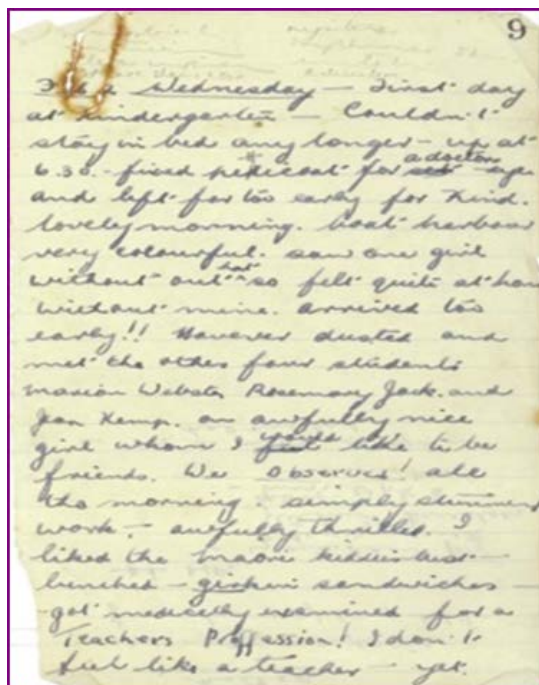 9
Wednesday - First day
at Kindergarten - Couldn't
stay in bed any longer - up at
6.30. - fixed petticoat for
and left far too early for Kind.
lovely morning. boat harbour
very colourful. saw one girl
without out hat so felt quite at hom
without mine. arrived too
early!! However dusted and
met the other four students
Marion Webster Rosemary Jack. and
Jean Kemp. an awfully nice
girl whom I would like to be
friends. We observed! all
the morning. simply
work. - awfully thrilled. I
liked the maori kiddies best -
lunched - girkin sandwiches -
- got medically examined for a
Teachers Proffession! I don't
feel like a teacher - yet.